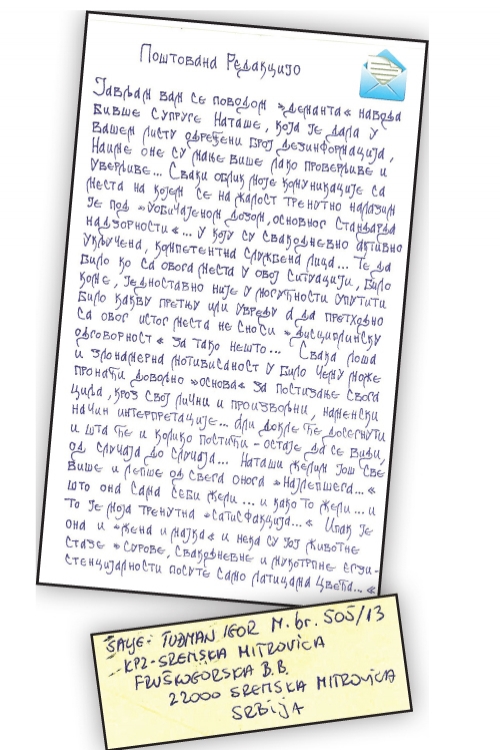 Поштована Редакцијо
Јављам вам се поводом »деманта« навода
бивше супруге Наташе, која је дала у
вашем листу одређени број дезинформација,
Наиме оне су мање више лако проверљиве и
уверљиве... Сваки облик моје комуникације са
места на којем се на жалост тренутно налазим
је под »уобичајеном дозом, основног стандарда
надзорности«... у коју су свакодневно активно
укључена, компетентна службена лица... Те да
било ко са овога места у овој ситуацији, било
коме, једноставно није у могућности упутити
било какву претњу или увреду а да претходно
са овог истог места не сноси »дисциплинску
одговорност« за тако нешто... Свака лоша
и злонамерна мотивисаност у било чему може
пронаћи довољно »основа« за постизање свога
циља, кроз свој лични и произвољни, наменски
начин интерпретације... Али докле ће досегнути
и шта ће и колико постићи - остаје да се види,
од случаја до случаја... Наташи желим још све
више и лепше од свега онога »најлепшега...«
што она сама себи жели... и како то жели... и
то је моја тренутна »сатисфакција...« Ипак је
она и »жена и мајка« и нека су јој животне
стазе »сурове, свакодневне и мукотрпне егзи-
стенцијалности посуте само латицама цвећа...«
ŠALJE: TUĐMAN IGOR M. br. 505/13
KPZ-SREMSKA MITROVICA
FRUŠKOGORSKA B.B.
22000 SREMSKA MITROVICA
SRBIJA